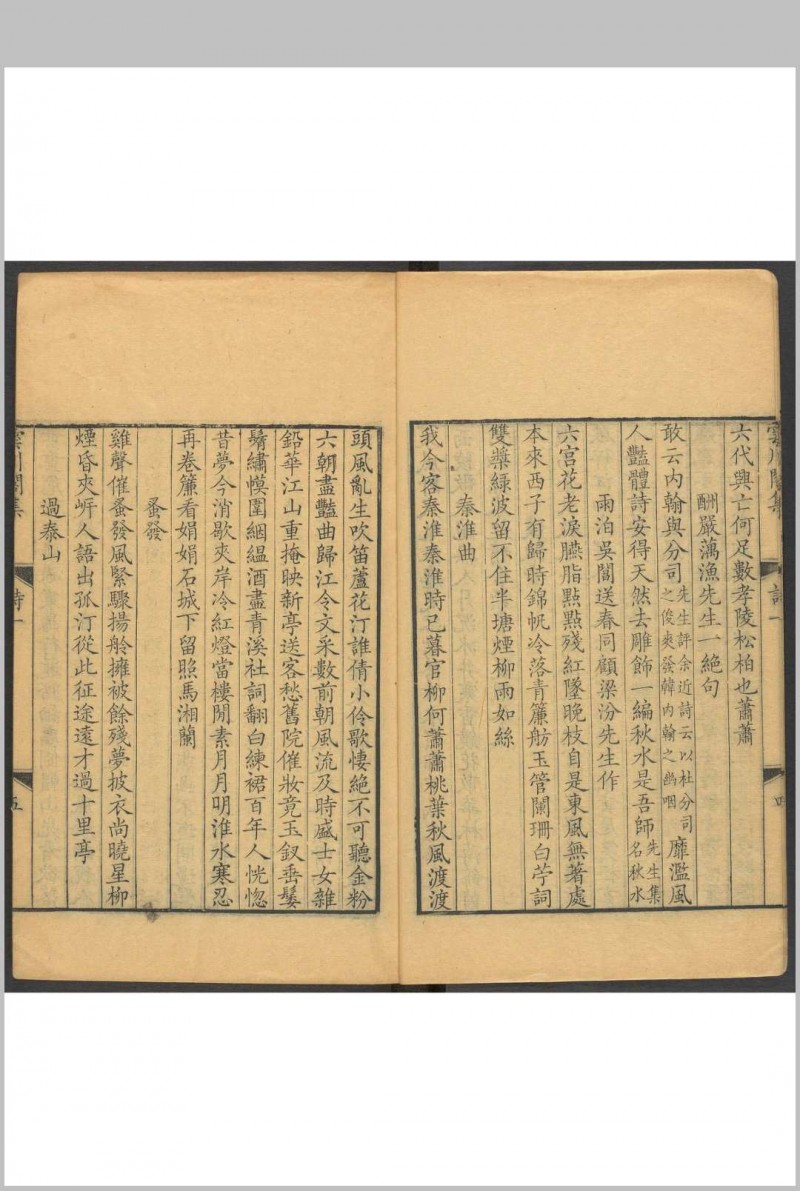 六代興亡何足數孝陵松柏也蕭蕭
酬嚴藕漁先生一絕句
敢云內翰與分司先生評余近詩云以杜分司之俊爽發韓內翰之幽咽靡濫風
人豔體詩安得天然去雕飾一編秋水是吾師先生集名秋水
雨泊吳閶送春同顧梁汾先生作
六宮花老淚臙脂點點殘紅墜晚枝自是東風無著處
本來西子有歸時錦帆冷落青簾舫玉管闌珊白苧詞
雙槳綠波留不住半塘煙柳雨如絲
秦淮曲
我今客秦淮秦淮時已暮官柳何蕭蕭桃葉秋風渡渡
雲川閣集 詩一 四
頭風亂生吹笛蘆花汀誰倩小伶歌悽絕不可聽金粉
六朝盡豔曲歸江令文采數前朝風流及時盛士女雜
鉛華江山重掩映新亭送客愁舊院催妝竟玉釵垂鬟
鬌繡幙圍絪縕酒盡青溪社詞翻白練裙百年人恍惚
昔夢今消歇夾岸冷紅燈當樓閒素月月明淮水寒忍
再卷簾看娟娟石城下留照馬湘蘭
蚤發
雞聲催蚤發風緊驟揚舲擁被餘殘夢披衣尚曉星柳
煙昏夾岸人語出孤汀從此征途遠才過十里亭
過泰山
雲川閣集 詩一 五